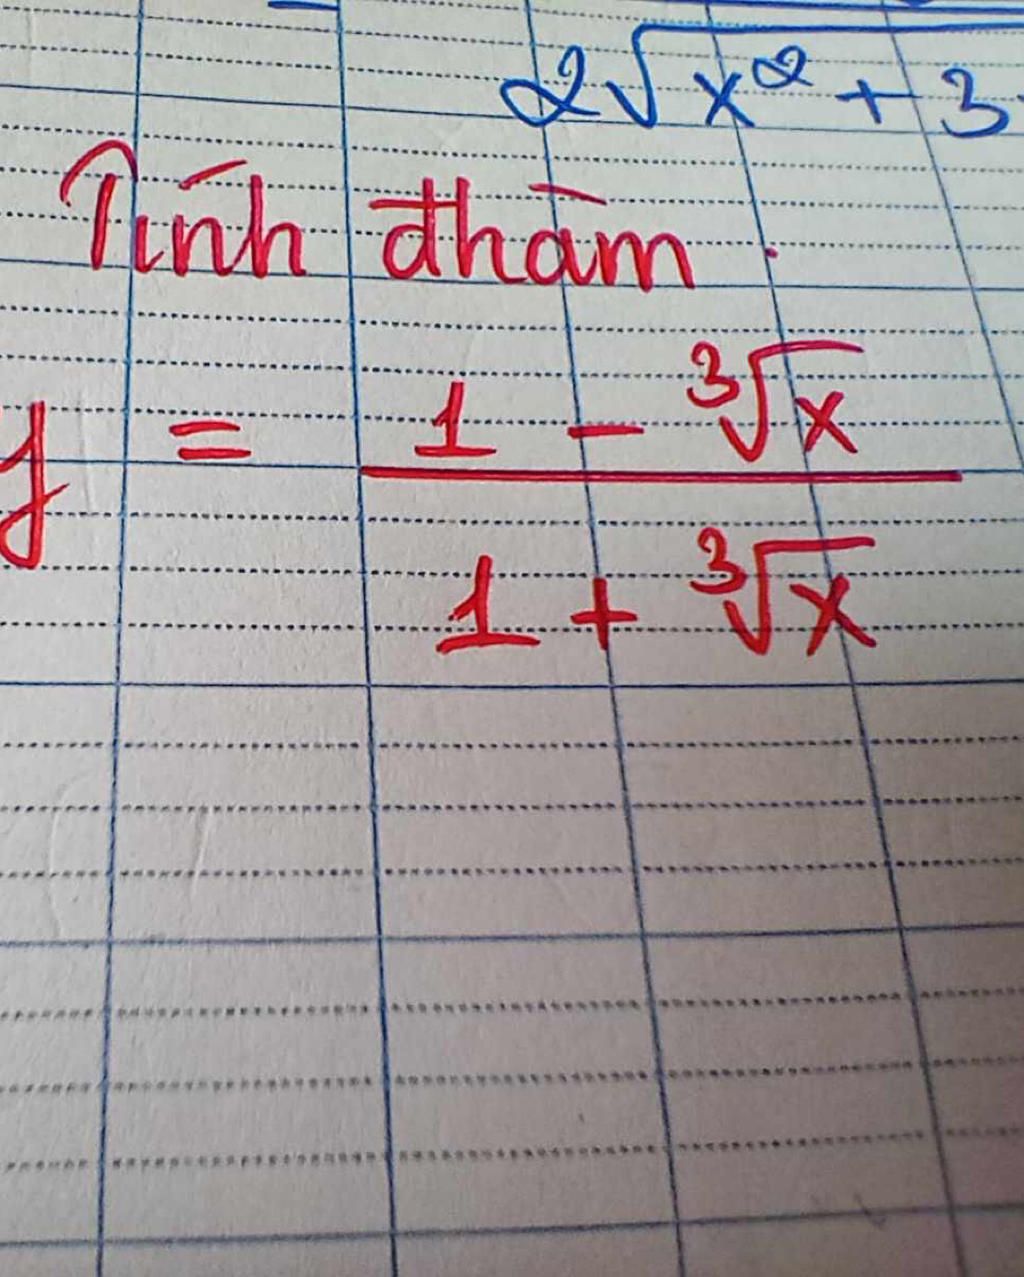 2√x² + 3
Tính đhàm .
y = 1 - ³√x
1 + ³√x